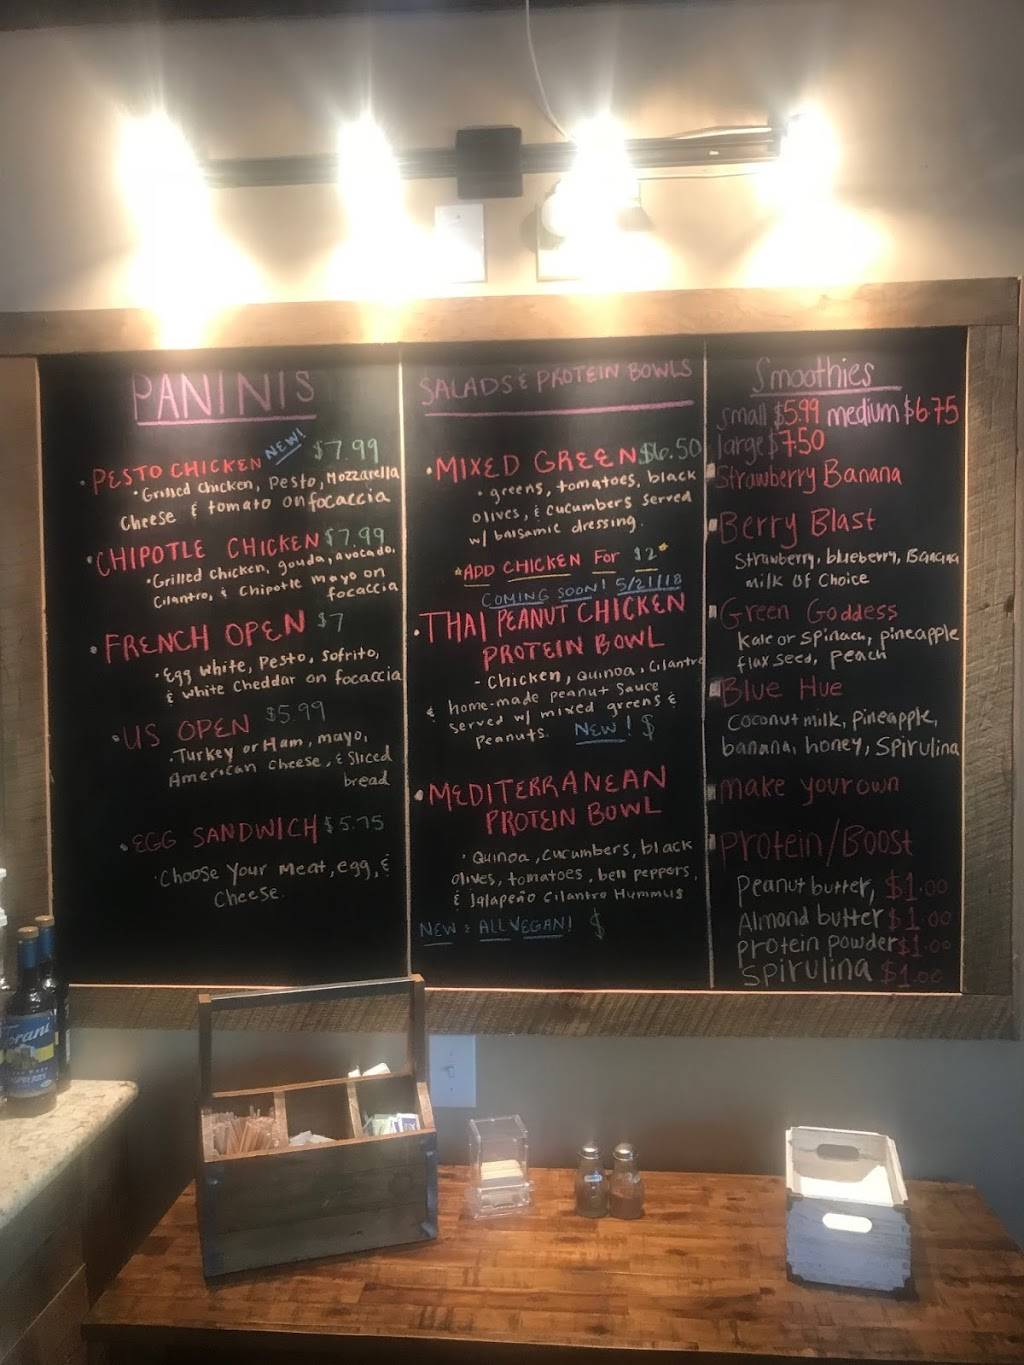 PANINIS
NEW!
• PESTO CHICKEN $7.99
• Grilled Chicken, Pesto, Mozzarella
Cheese & tomato on focaccia
• CHIPOTLE CHICKEN $7.99
• Grilled chicken, gouda, avocado,
Cilantro, & Chipotle mayo on
focaccia
• FRENCH OPEN $7
• Egg white, Pesto, Sofrito,
& white Cheddar on focaccia
• US OPEN $5.99
• Turkey or Ham, mayo,
American Cheese, & Sliced
bread
• EGG SANDWICH $5.75
• Choose Your Meat, egg, &
Cheese.
SALADS & PROTEIN BOWLS
• MIXED GREEN $6.50
• greens, tomatoes, black
olives, & cucumbers served
w/ balsamic dressing.
*ADD CHICKEN For $2*
COMING SOON! 5/21/18
• THAI PEANUT CHICKEN
PROTEIN BOWL
- Chicken, Quinoa, Cilantro
& home-made peanut sauce
served w/ mixed greens &
Peanuts. NEW! $
• MEDITERRANEAN
PROTEIN BOWL
• Quinoa, cucumbers, black
olives, tomatoes, bell peppers,
& Jalapeño Cilantro Hummus
NEW & ALL VEGAN! $
Smoothies
small $5.99 medium $6.75
large $7.50
Strawberry Banana
Berry Blast
Strawberry, blueberry, Banana
milk Of Choice
Green Goddess
Kale or Spinach, pineapple
flax seed, peach
Blue Hue
Coconut milk, Pineapple,
banana, honey, Spirulina
make your own
Protein/Boost
Peanut butter, $1.00
Almond butter $1.00
protein powder $1.00
Spirulina $1.00